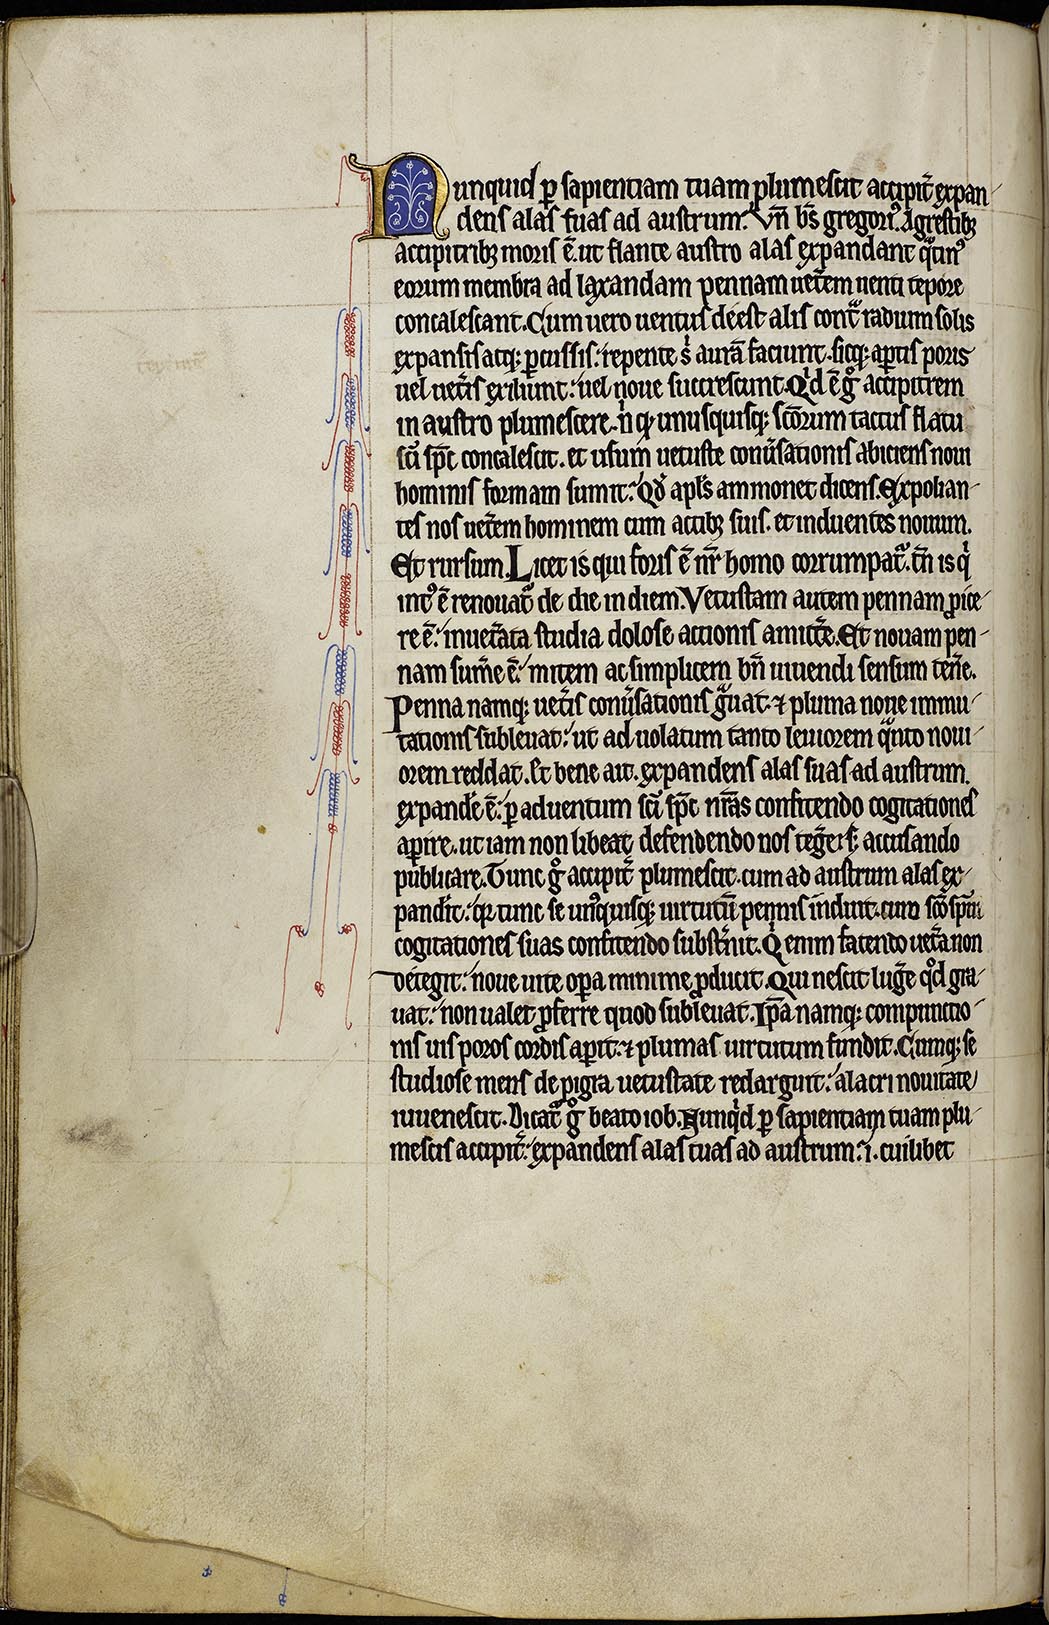 Nunquid ꝑ sapientiam tuam plumescit accipit̃ expan
dens alas suas ad austrum. Vñ b̃s gregori᷒. Agrestibꝫ
accipitribꝫ moris ẽ. ut flante austro alas expandant q̃tin᷒
eorum membra ad laxandam pennam uet̃em uenti tepore
concalescant. Cum uero uentus deest alis cont̃ radium solis
expansis atqꝫ ꝑcussis: repente s̉ aurã faciunt. sicqꝫ aꝑtis poris
uel uet̃is exiliunt: uel noue succrescunt. Qͥd ẽ gͦ accipitrem
in austro plumescere. nͥ qꝫ unusquisqꝫ sc̃orum tactus flatu
sc̃i sp̃c concalescit. et usum uetuste conũsationis abiciens noui
hominis formam sumit: Qd̓ apl̃s ammonet dicens. Expolian-
tes nos uet̃em hominem cum actibꝫ suis. et induentes nouum.
Et rursum. Licet is qui foris ẽ nr̃ homo corrumpat᷑. tñ is qͥ
int᷒ ẽ renouat᷑ de die in diem. Vetustam autem pennam ꝓice-
re ẽ: inuet̃ata studia dolose actionis amitt̃e. Et nouam pen-
nam sum̃e ẽ: mitem ac simplicem bñ uiuendi sensum ten̾e.
Penna namqꝫ uet̃is conũsationis gͣuat. ⁊ pluma noue immu-
tationis subleuat: ut ad uolatum tanto leuiorem qͣnto noui-
orem reddat. Et bene ait. expandens alas suas ad austrum.
expand̾e ẽ: ꝑ aduentum sc̃i sp̃c nr̃as confitendo cogitationes
aꝑire. ut iam non libeat defendendo nos teg̾e: s; accusando
publicare. Tunc gͦ accipit̃ plumescit. cum ad austrum alas ex-
pandit̾: qꝫ tunc se un᷒quisqꝫ uirtutũ pennis induit. cum sc̃o sp̃ui
cogitationes suas confitendo subst̾nit. Qͥ enim fatendo uet̾a non
detegit: noue uite oꝑa minime ꝓducit. Qui nescit lug̾e qͦd gra-
uat: non ualet ꝓferre quod subleuat. Ip̃a namqꝫ compunctio-
nis uis poros cordis aꝑit: ⁊ plumas uirtutum fundit. Cumqꝫ se
studiose mens de pigra uetustate redarguit: alacri nouitate
iuuenescit. Dicat᷑ gͦ beato iob. Nunqͥd ꝑ sapientiam tuam plu-
mescis accipit̃: expandens alas tuas ad austrum: .i. cuilibet